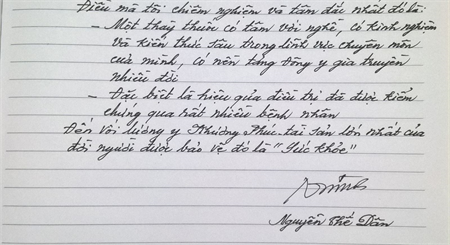 Điều mà tôi chiêm nghiệm và tâm đắc nhất đó là:
- Một thầy thuốc có tâm với nghề, có kinh nghiệm
và kiến thức sâu trong lĩnh vực chuyên môn
của mình, có nền tảng Đông y gia truyền
nhiều đời
- Đặc biệt là hiệu quả điều trị đã được kiểm
chứng qua rất nhiều bệnh nhân
Đến với lương y Phương Phúc tài sản lớn nhất của
đời người được bảo vệ đó là "Sức khỏe"
Nguyễn Thế Dân